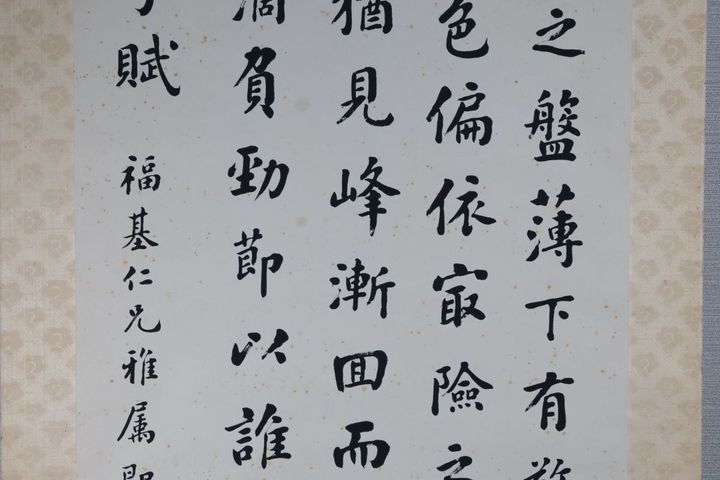 之盤薄下有
色偏依冣險之
猶見峰漸回而
負勁節以誰
賦
福基仁兄雅属